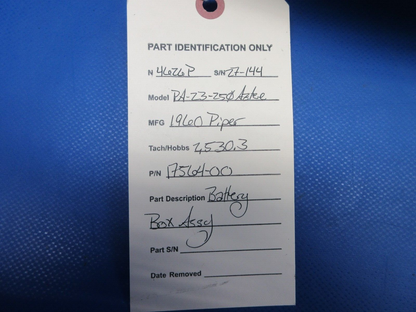 PART IDENTIFICATION ONLY
N 4626P S/N 27-144
Model PA-23-250 Aztec
MFG 1960 Piper
Tach/Hobbs 4530.3
P/N 17564-00
Part Description Battery
Box Assy
Part S/N
Date Removed